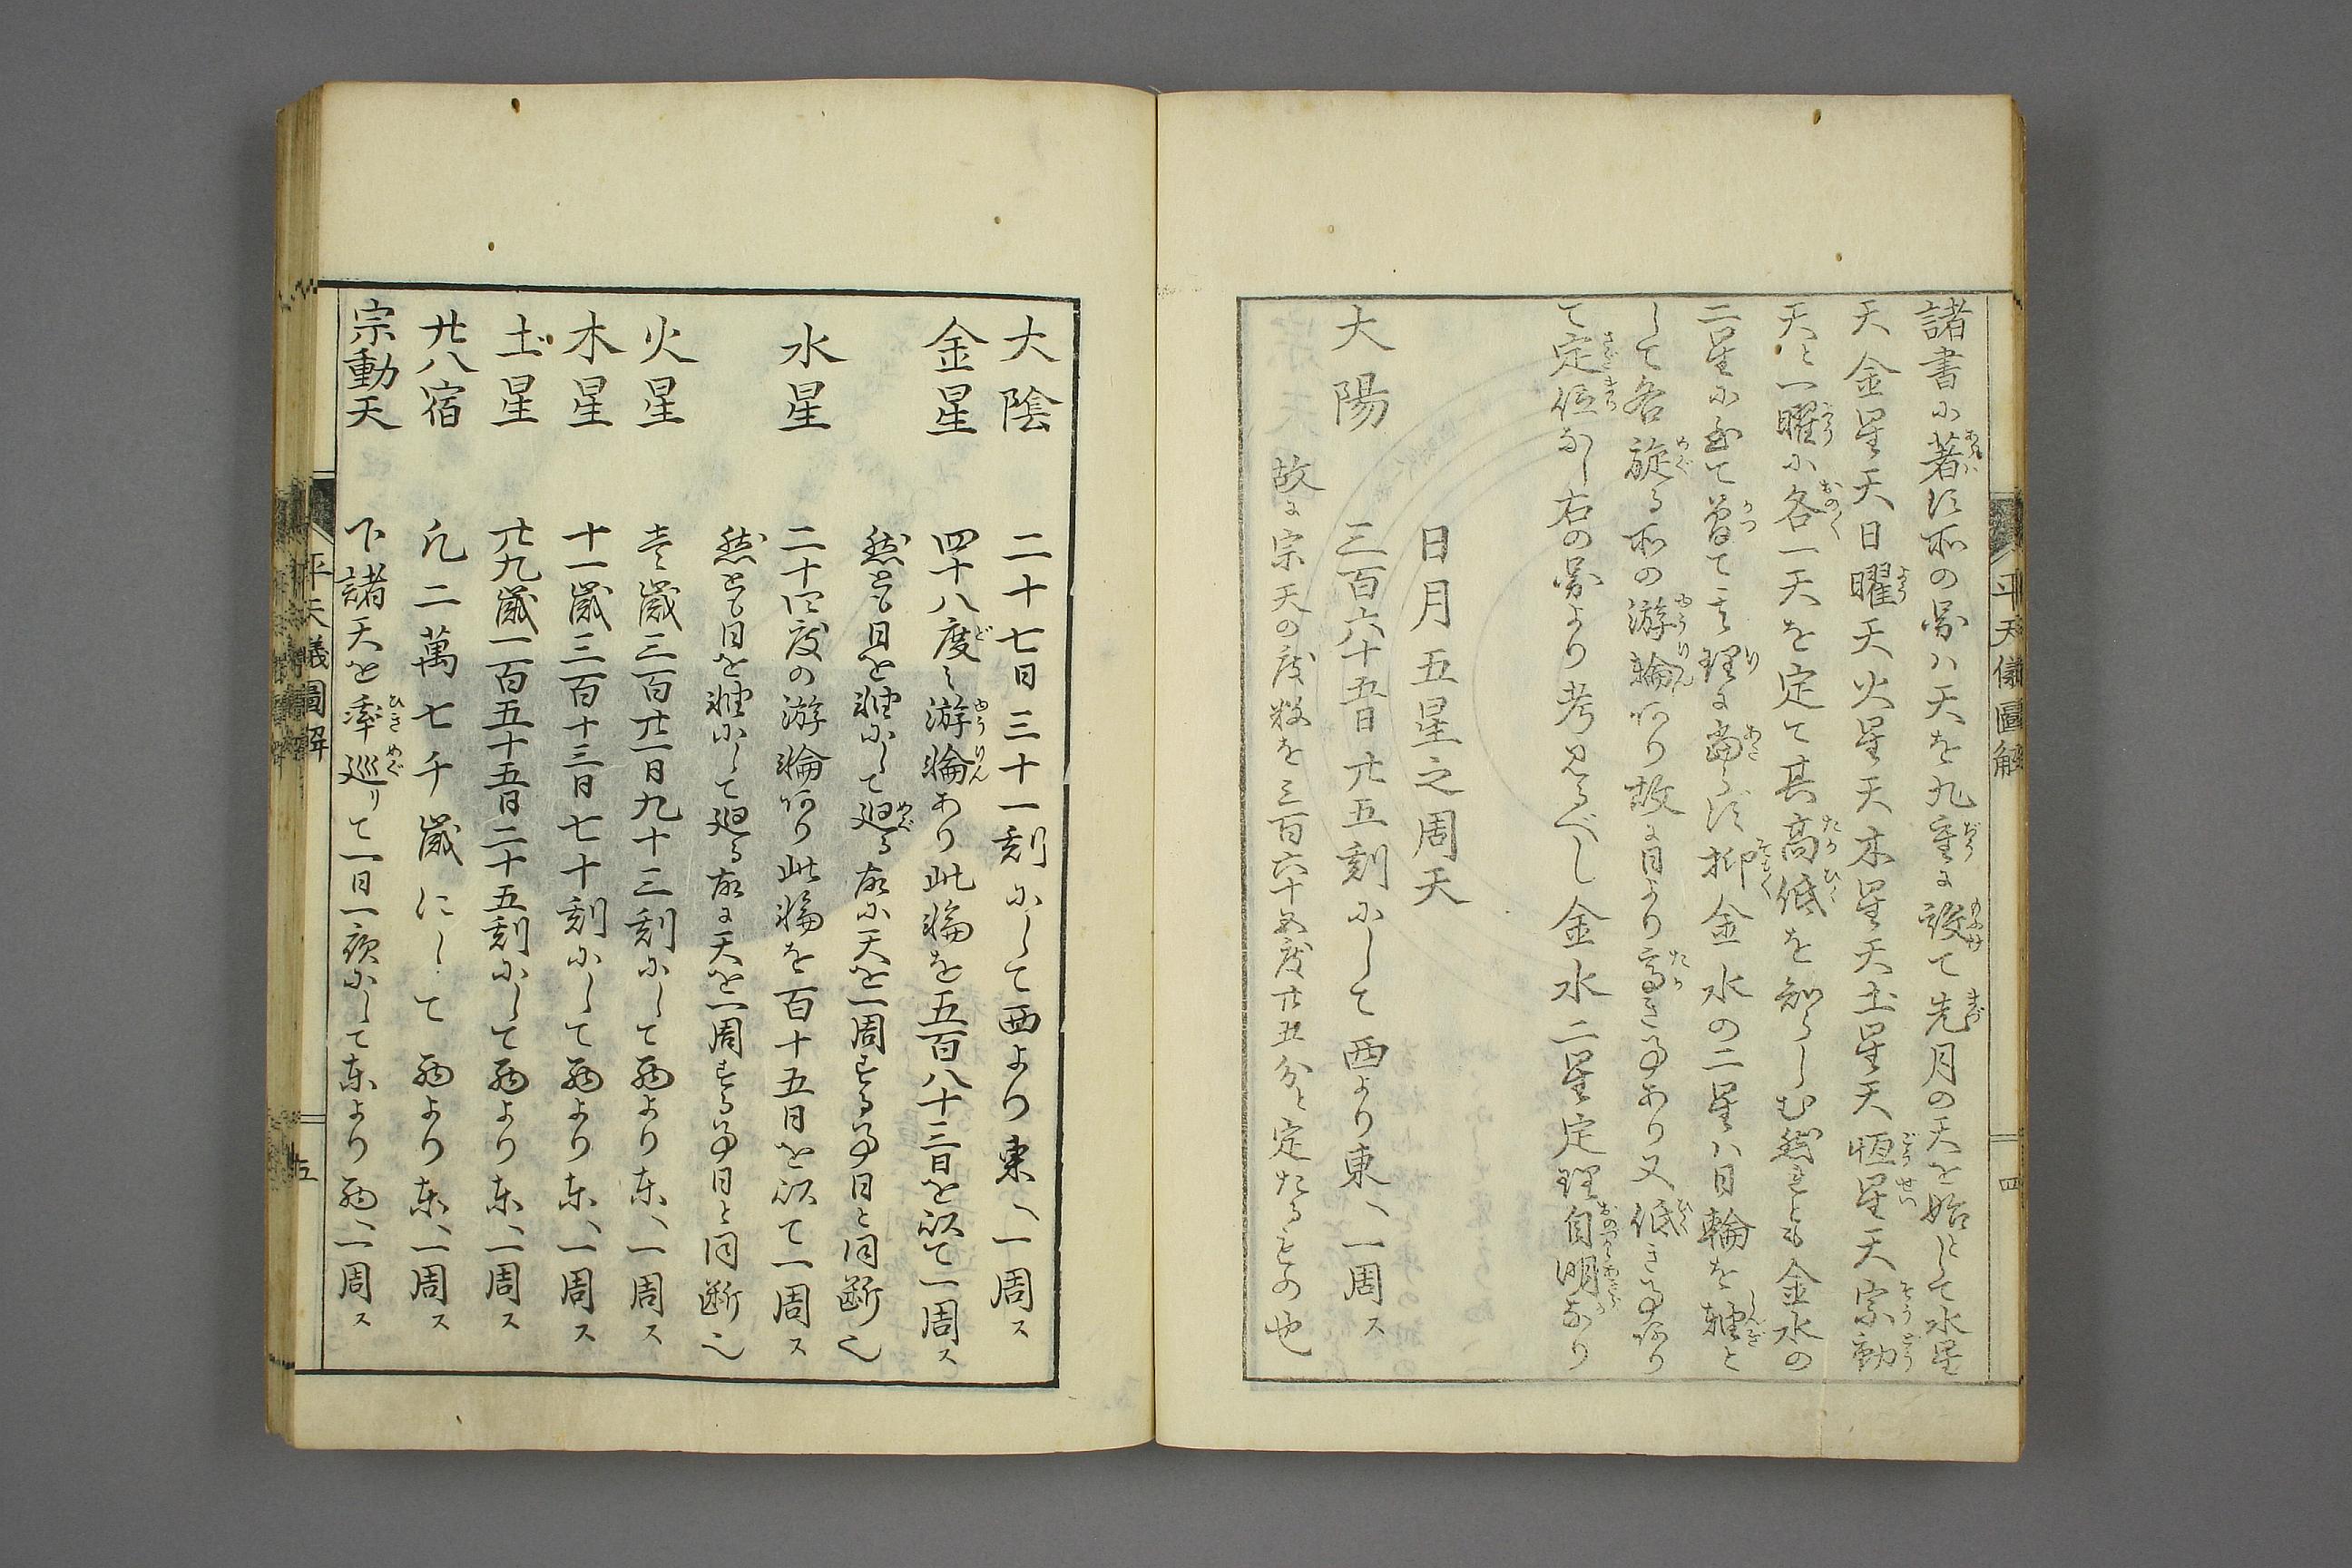 諸書に著す所の圖ハ天を九重に設て先月の天を始として水星
天金星天日曜天火星天木星天土星天恒星天宗動
天と一曜に各一天を定て其高低を知らしむ然れとも金水の
二星に至て曽て其理に當らす抑金水の二星ハ日輪を軸と
して各旋る所の游輪あり故に日より高き事あり又低き事あり
て定位なし右の圖より考見るべし金水二星定理自明なり
日月五星之周天
大陽 三百六十五日廿五刻にして西より東へ一周ス
故に宗天の度数を三百六十五度廿五分と定たるもの也
平天儀圖解 四
大陰 二十七日三十一刻にして西より東へ一周ス
金星 四十八度之游輪あり此輪を五百八十三日を以て一周ス
然とも日を軸にして廻る故に天を一周する事日と同断也
水星 二十四度の游輪あり此輪を百十五日を以て一周ス
然とも日を軸にして廻る故に天を一周する事日と同断也
火星 壱歳三百廿一日九十三刻にして西より東へ一周ス
木星 十一歳三百十三日七十刻にして西より東へ一周ス
土星 廿九歳一百五十五日二十五刻にして西より東へ一周ス
廿八宿 凡二萬七千歳にして西より東へ一周ス
宗動天 下諸天を率巡りて一日一夜にして東より西へ一周ス
平天儀圖解 五